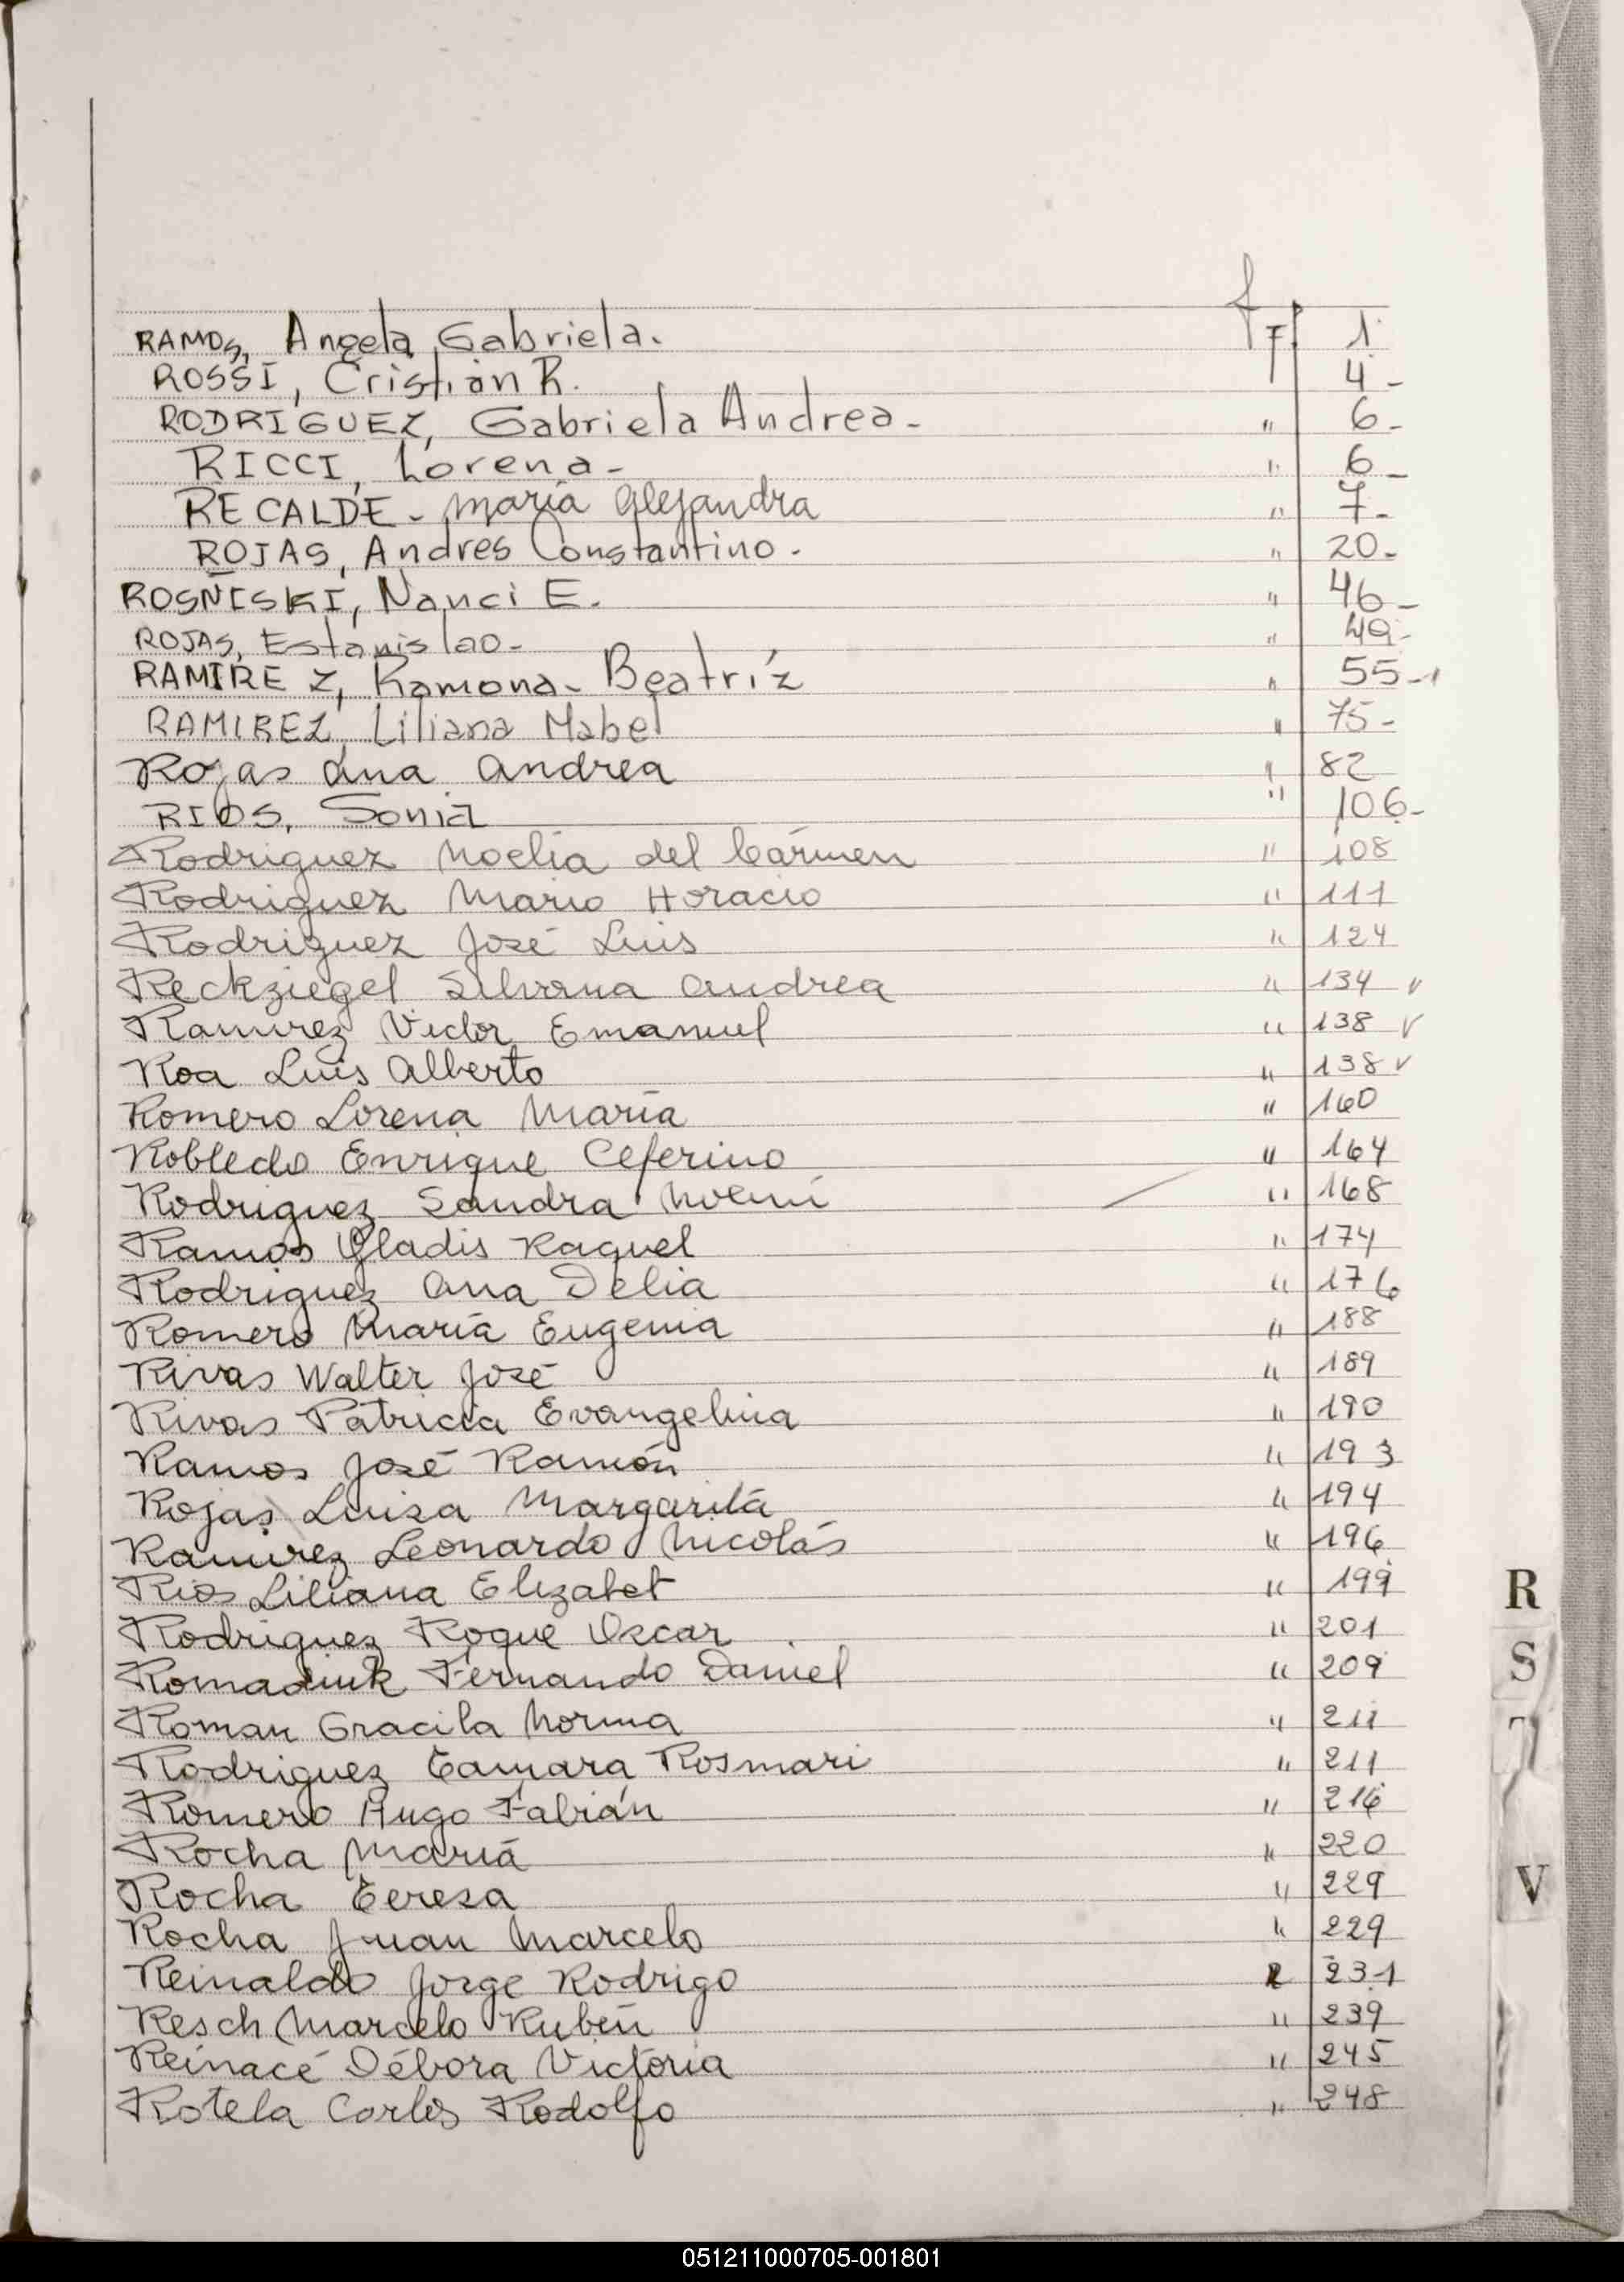 RAMOS, Angela Gabriela. F 1
ROSSI, Cristian R. 4-
RODRIGUEZ, Gabriela Andrea- " 6-
RICCI, Lorena- " 6-
RECALDE- María Alejandra " 7-
ROJAS, Andres Constantino. " 20-
ROSÑISKI, Nanci E. " 46-
ROJAS, Estanislao- " 49-
RAMIREZ, Ramona- Beatríz " 55-1
RAMIREZ, Liliana Mabel " 75-
Rojas Ana Andrea " 82
RIOS, Sonia " 106-
Rodriguez Noelia del Cármen " 108
Rodriguez Mario Horacio " 111
Rodriguez José Luis " 124
Reckziegel Silvana Andrea " 134 v
Ramirez Victor Emanuel " 138 v
Roa Luis Alberto " 138 v
Romero Lorena María " 160
Robledo Enrique Ceferino " 164
Rodriguez Sandra Noemí " 168
Ramos Gladis Raquel " 174
Rodriguez Ana Delia " 176
Romero María Eugenia " 188
Rivas Walter José " 189
Rivas Patricia Evangelina " 190
Ramos José Ramón " 193
Rojas Luisa Margarita " 194
Ramirez Leonardo Nicolás " 196
Rios Liliana Elizabet " 199
Rodriguez Roque Oscar " 201
Romaniuk Fernando Daniel " 209
Roman Gracila Norma " 211
Rodriguez Tamara Rosmari " 211
Romero Hugo Fabián " 216
Rocha María " 220
Rocha Teresa " 229
Rocha Juan Marcelo " 229
Reinaldo Jorge Rodrigo 231
Resch Marcelo Rubén " 239
Reinacé Débora Victoria " 245
Rotela Carlos Rodolfo " 248
R
S
T
V
051211000705-001801